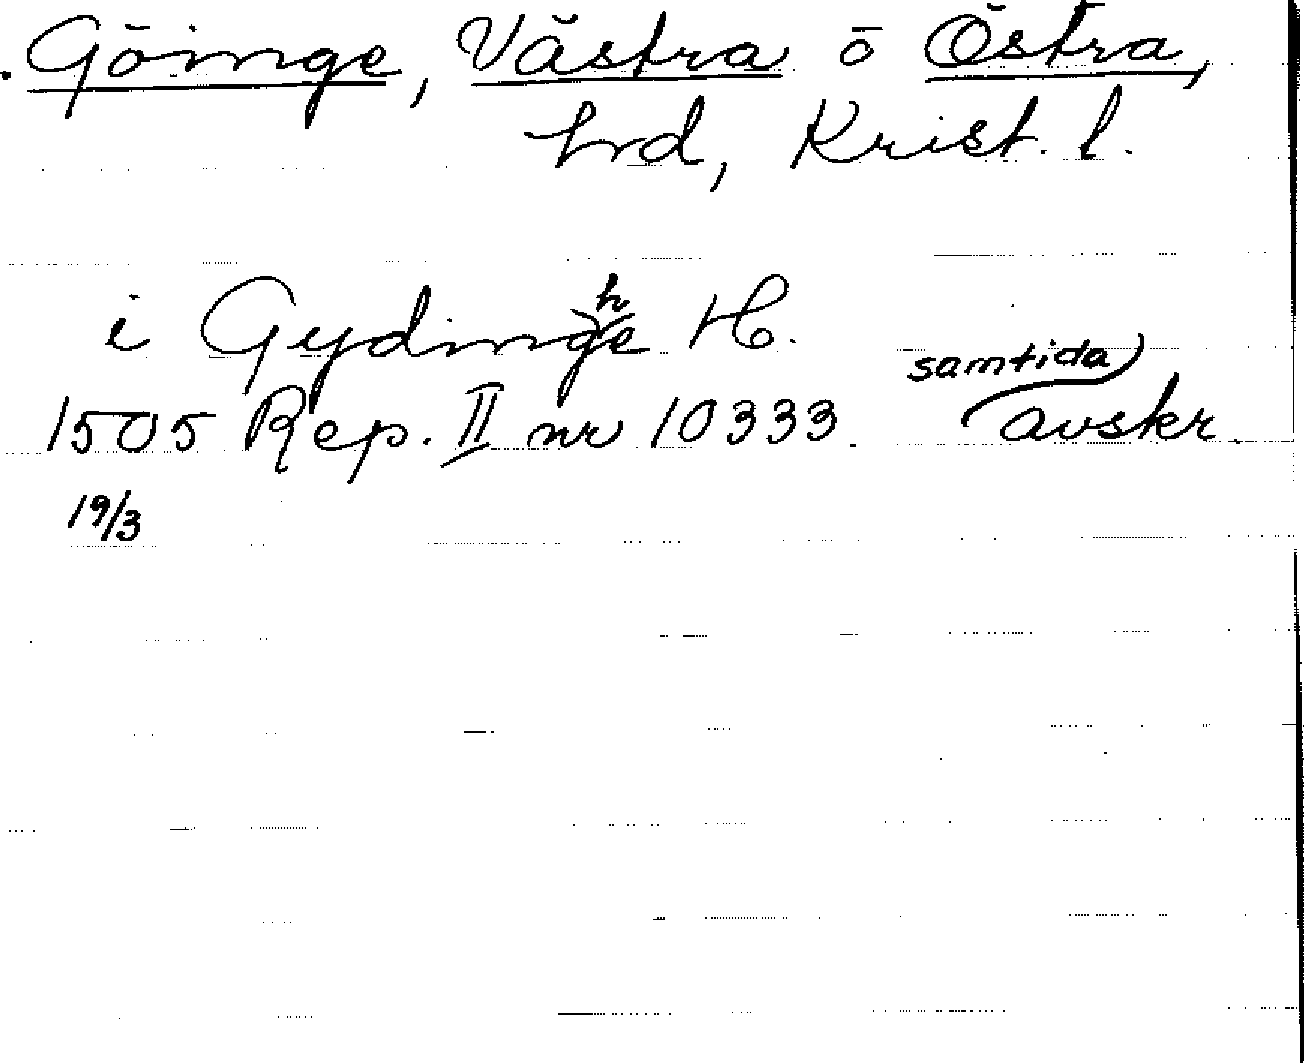 Göinge, Västra o Östra,
hrd, Krist. l.
i Gydinghe H.
samtida
1505 Rep. II nr 10333. avskr.
19/3